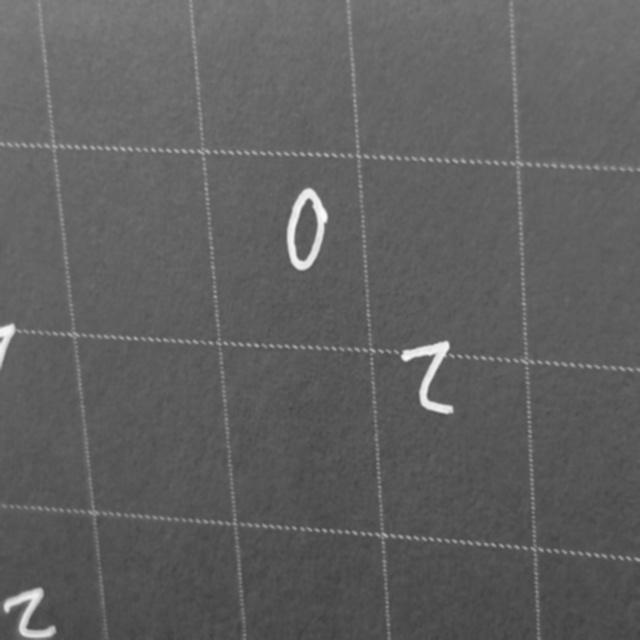 0
2
2